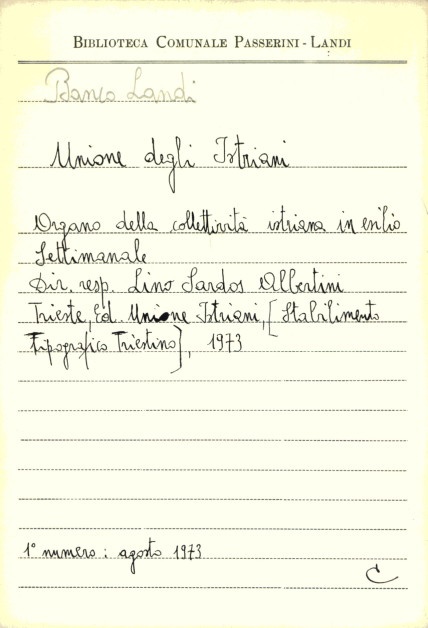 BIBLIOTECA COMUNALE PASSERINI - LANDI
Banco Landi
Unione degli Istriani
Organo della collettività istriana in esilio
Settimanale
Dir. resp. Lino Sardos Albertini
Trieste, Ed. Unione Istriani, [Stabilimento
Tipografico Triestino], 1973
1° numero: agosto 1973
C